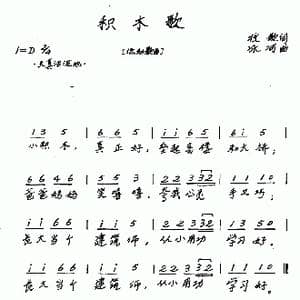 积木歌
1=D 2/4
1 3 5 | 6 6 5 | i i 6 5 | 6 i 5 |
小积木, 真正好, 垒起高楼 和大桥;
6 6 4 6 | 5 6 5 | 2 2 3 3 2 | 1 1 1 0 |
爸爸妈妈 笑嘻嘻, 夸我心灵 手又巧;
i i 6 6 | 5 5 5 | 2 2 3 3 2 | 1 3 5 0 |
长大当个 建筑师, 从小用功 学习好。
i i 6 6 | 5 5 5 | 2 2 3 3 2 | 1 1 1 0 |
长大当个 建筑师, 从小用功 学习好。